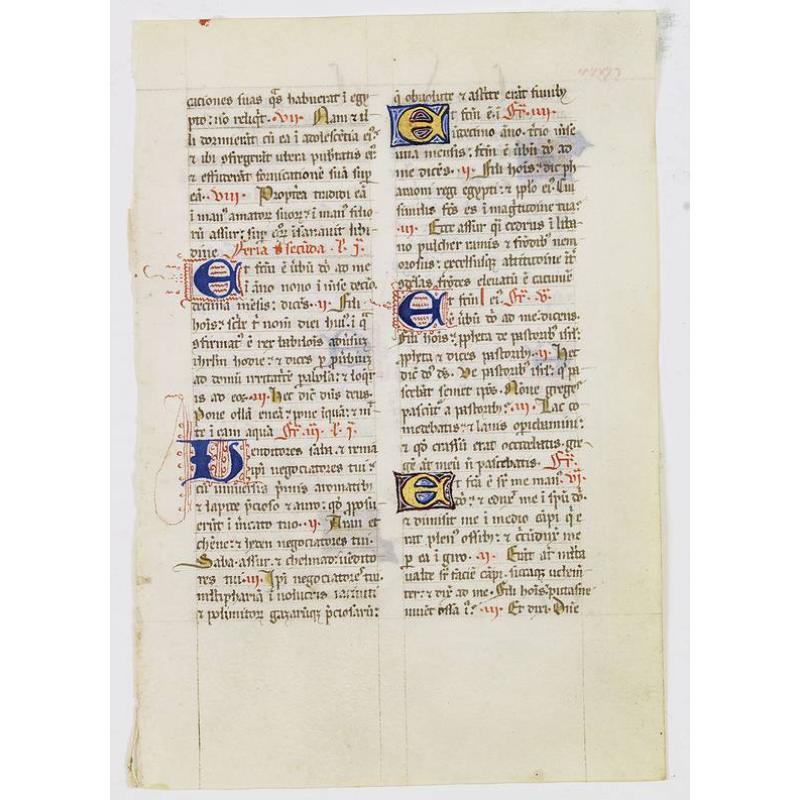 caciones suas qs habuerat i egy
pto: no reliqt. VII. Nam et il
li dormierunt cu ea i adolescetia ei9:
et ibi sfregerut ubera pubtatis ei9:
et effuderut fornicatione sua sup
ea. VIII. Propterea tradidi ea
i man9 amator suor: et i man9 filio
ru assur: sup
dine. Feria secuda. l. j.
Et fcm e ubu dni ad me
i ano nono i mese decio
decima mesis: dices. II. Fili
hois: scbe t nom diei hui9: i q
sfirmat9 e rex babilois adusus
ihrlm hodie: et dices p puerbiu
ad domu irritatrice pabola: et loqr
is ad eos. III. Hec dic dns deus.
Pone olla enea: pone iqua: et mi
te i eam aqua. Fr. III. l. j.
Venditores saba et rema
ipi negociatores tui:
cu uniuersis pmis aromatibz
et lapide pcioso et auro: qd pposu
erut i mcato tuo. II. Aran et
chene: et heden negociatores tui.
Saba assur: et chelmad: uedito
res tui. III. Ipi negociatores tui
mltiphariā i uolucris iacincti
et polimitor gazarūqz pciosarū:
q obuolute et astrcte erat funibz
Et fcm e: i Fr. IIII.
udecimo ano. tcio mse
una mensis: fcm e ubu dni ad
me dices. II. Fili hois: dic ph
araoni regi egypti: et pplo ei9. Cui
similis fcs es i magitudine tua:
III. Ecce assur qi cedrus i liba
no pulcher ramis et frodibz nem
orosus: excelsusqz altitudine it
sdesas frodes eleuatu e cacume
Et fcm ei9. Fr. V.
e ubu dni ad me dicens.
Fili hois: ppheta de pastoribz isrl:
ppheta et dices pastoribz. II. Hec
dic dns ds. Ve pastoribz isrl: q pa
scebat semet ipos. None greges
pascut a pastoribz: III. Lac co
medebatis: et lanis opiebamini:
et qd crassu erat occidebatis: gre
ge at meu n pascebatis. Fr.
Et fca e sr me man9 VI.
dni: et eduxit me i spu dni.
et dimisit me i medio capi q e
rat plen9 ossibz: et ccuduxit me
p ea i giro. II. Erat at mlta
ualde sr facie capi. siccaqz uehem
ter: et dix ad me. Fili hois: putasne
uiuet ossa i: III. Et dixi. Dne